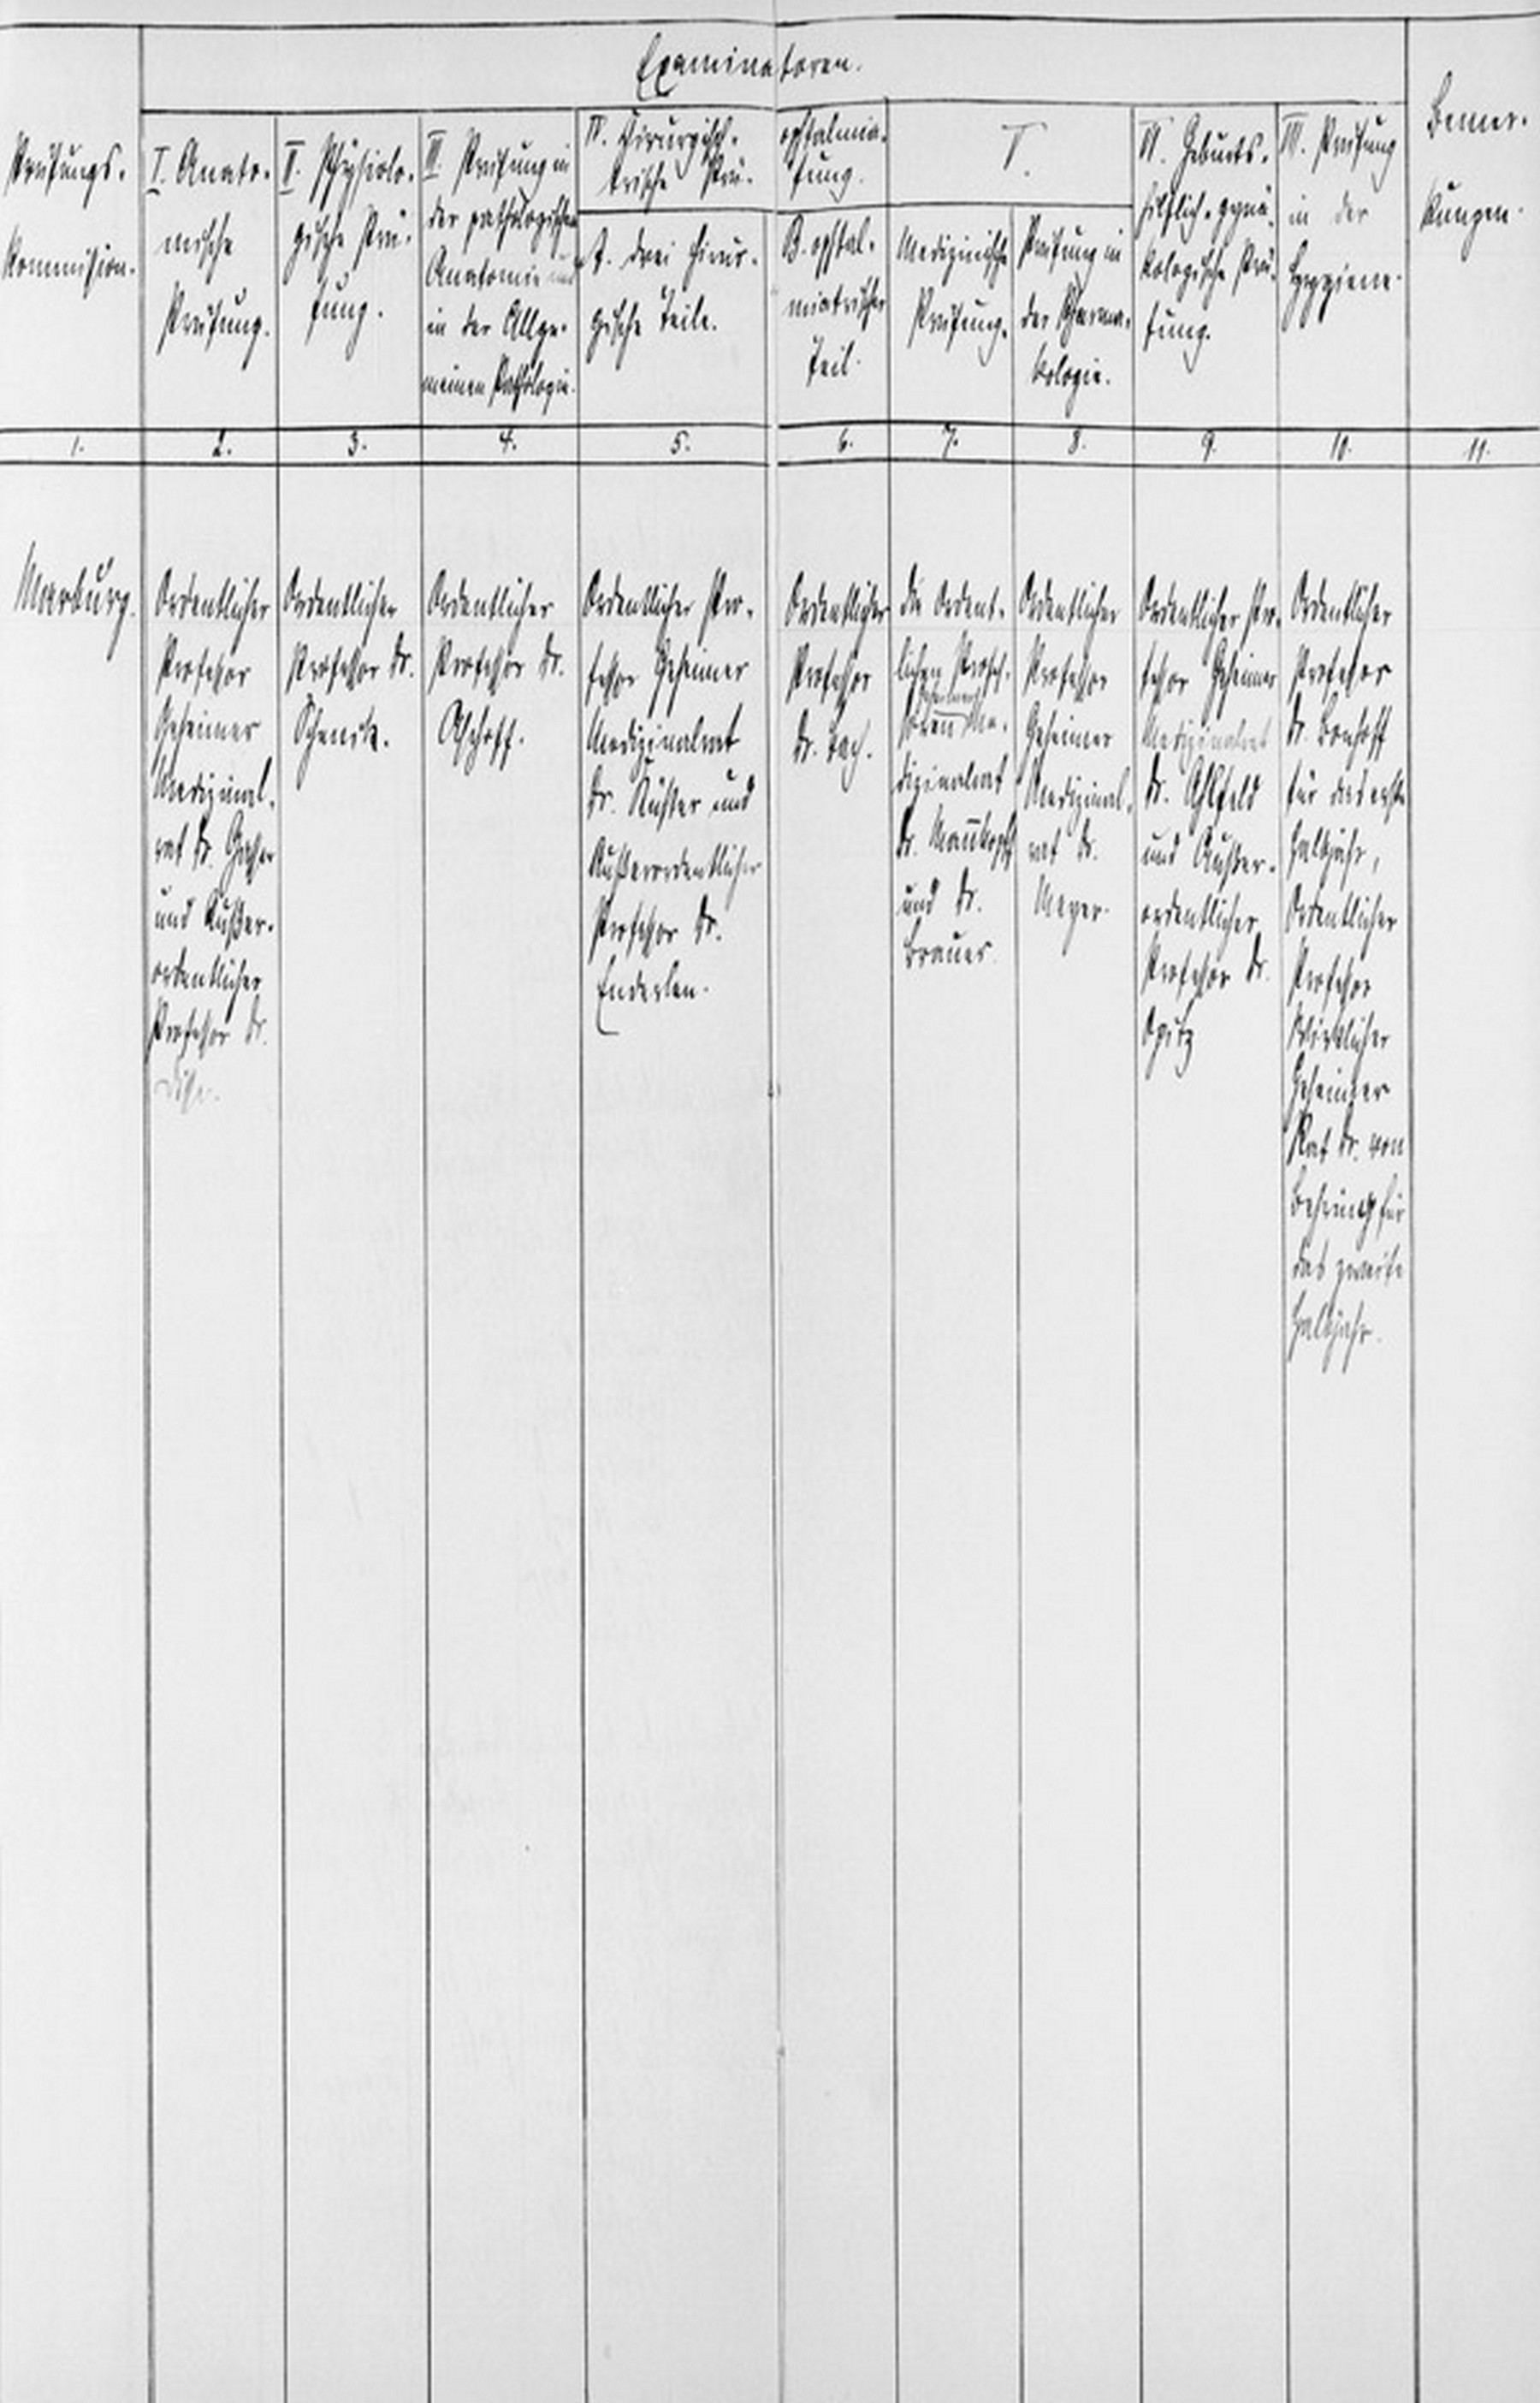 Examinatoren.
Prüfungs-
Kommission.
I. Anato-
mische
Prüfung.
II. Physiolo-
gische Prü-
fung.
III. Prüfung in
der pathologischen
Anatomie und
in der Allge-
meinen Pathologie.
IV. Chirurgisch-
ophthalmia-
trische Prü-
fung.
A. drei chirur-
gische Teile.
B. ophthal-
miatrischer
Teil.
V.
Medizinische
Prüfung.
Prüfung in
der Pharma-
kologie.
VI. Geburts-
hilflich-gynä-
kologische Prü-
fung.
VII. Prüfung
in der
Hygiene.
Bemer-
kungen.
1. 2. 3. 4. 5. 6. 7. 8. 9. 10. 11.
Marburg.
Ordentlicher
Professor
Geheimer
Medizinal-
rat Dr. Gasser
und Außer-
ordentlicher
Professor Dr.
Disse.
Ordentlicher
Professor Dr.
Schenck.
Ordentlicher
Professor Dr.
Aschoff.
Ordentlicher Pro-
fessor Geheimer
Medizinalrat
Dr. Küster und
Außerordentlicher
Professor Dr.
Enderlen.
Ordentlicher
Professor
Dr. Bach.
die Ordent-
lichen Profes-
soren Geheimer Me-
dizinalrat
Dr. Mannkopff
und Dr.
Brauer.
Ordentlicher
Professor
Geheimer
Medizinal-
rat Dr.
Meyer.
Ordentlicher Pro-
fessor Geheimer
Medizinalrat
Dr. Ahlfeld
und Außer-
ordentlicher
Professor Dr.
Opitz
Ordentlicher
Professor
Dr. Bonhoff
für das erste
Halbjahr,
Ordentlicher
Professor
Wirklicher
Geheimer
Rat Dr. von
Behring für
das zweite
Halbjahr.